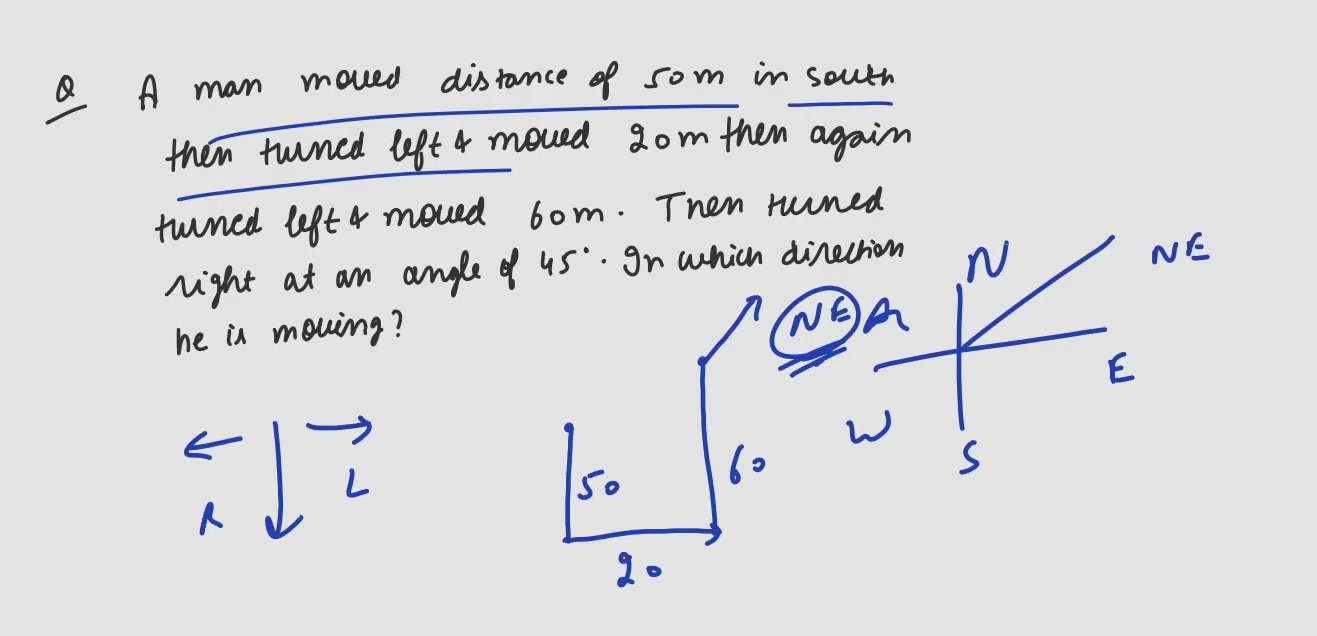 Q A man moved distance of 50m in south
then turned left & moved 20m then again
turned left & moved 60m. Then turned
right at an angle of 45°. In which direction
he is moving?
N
NE
NE
E
W
S
R
L
50
60
20